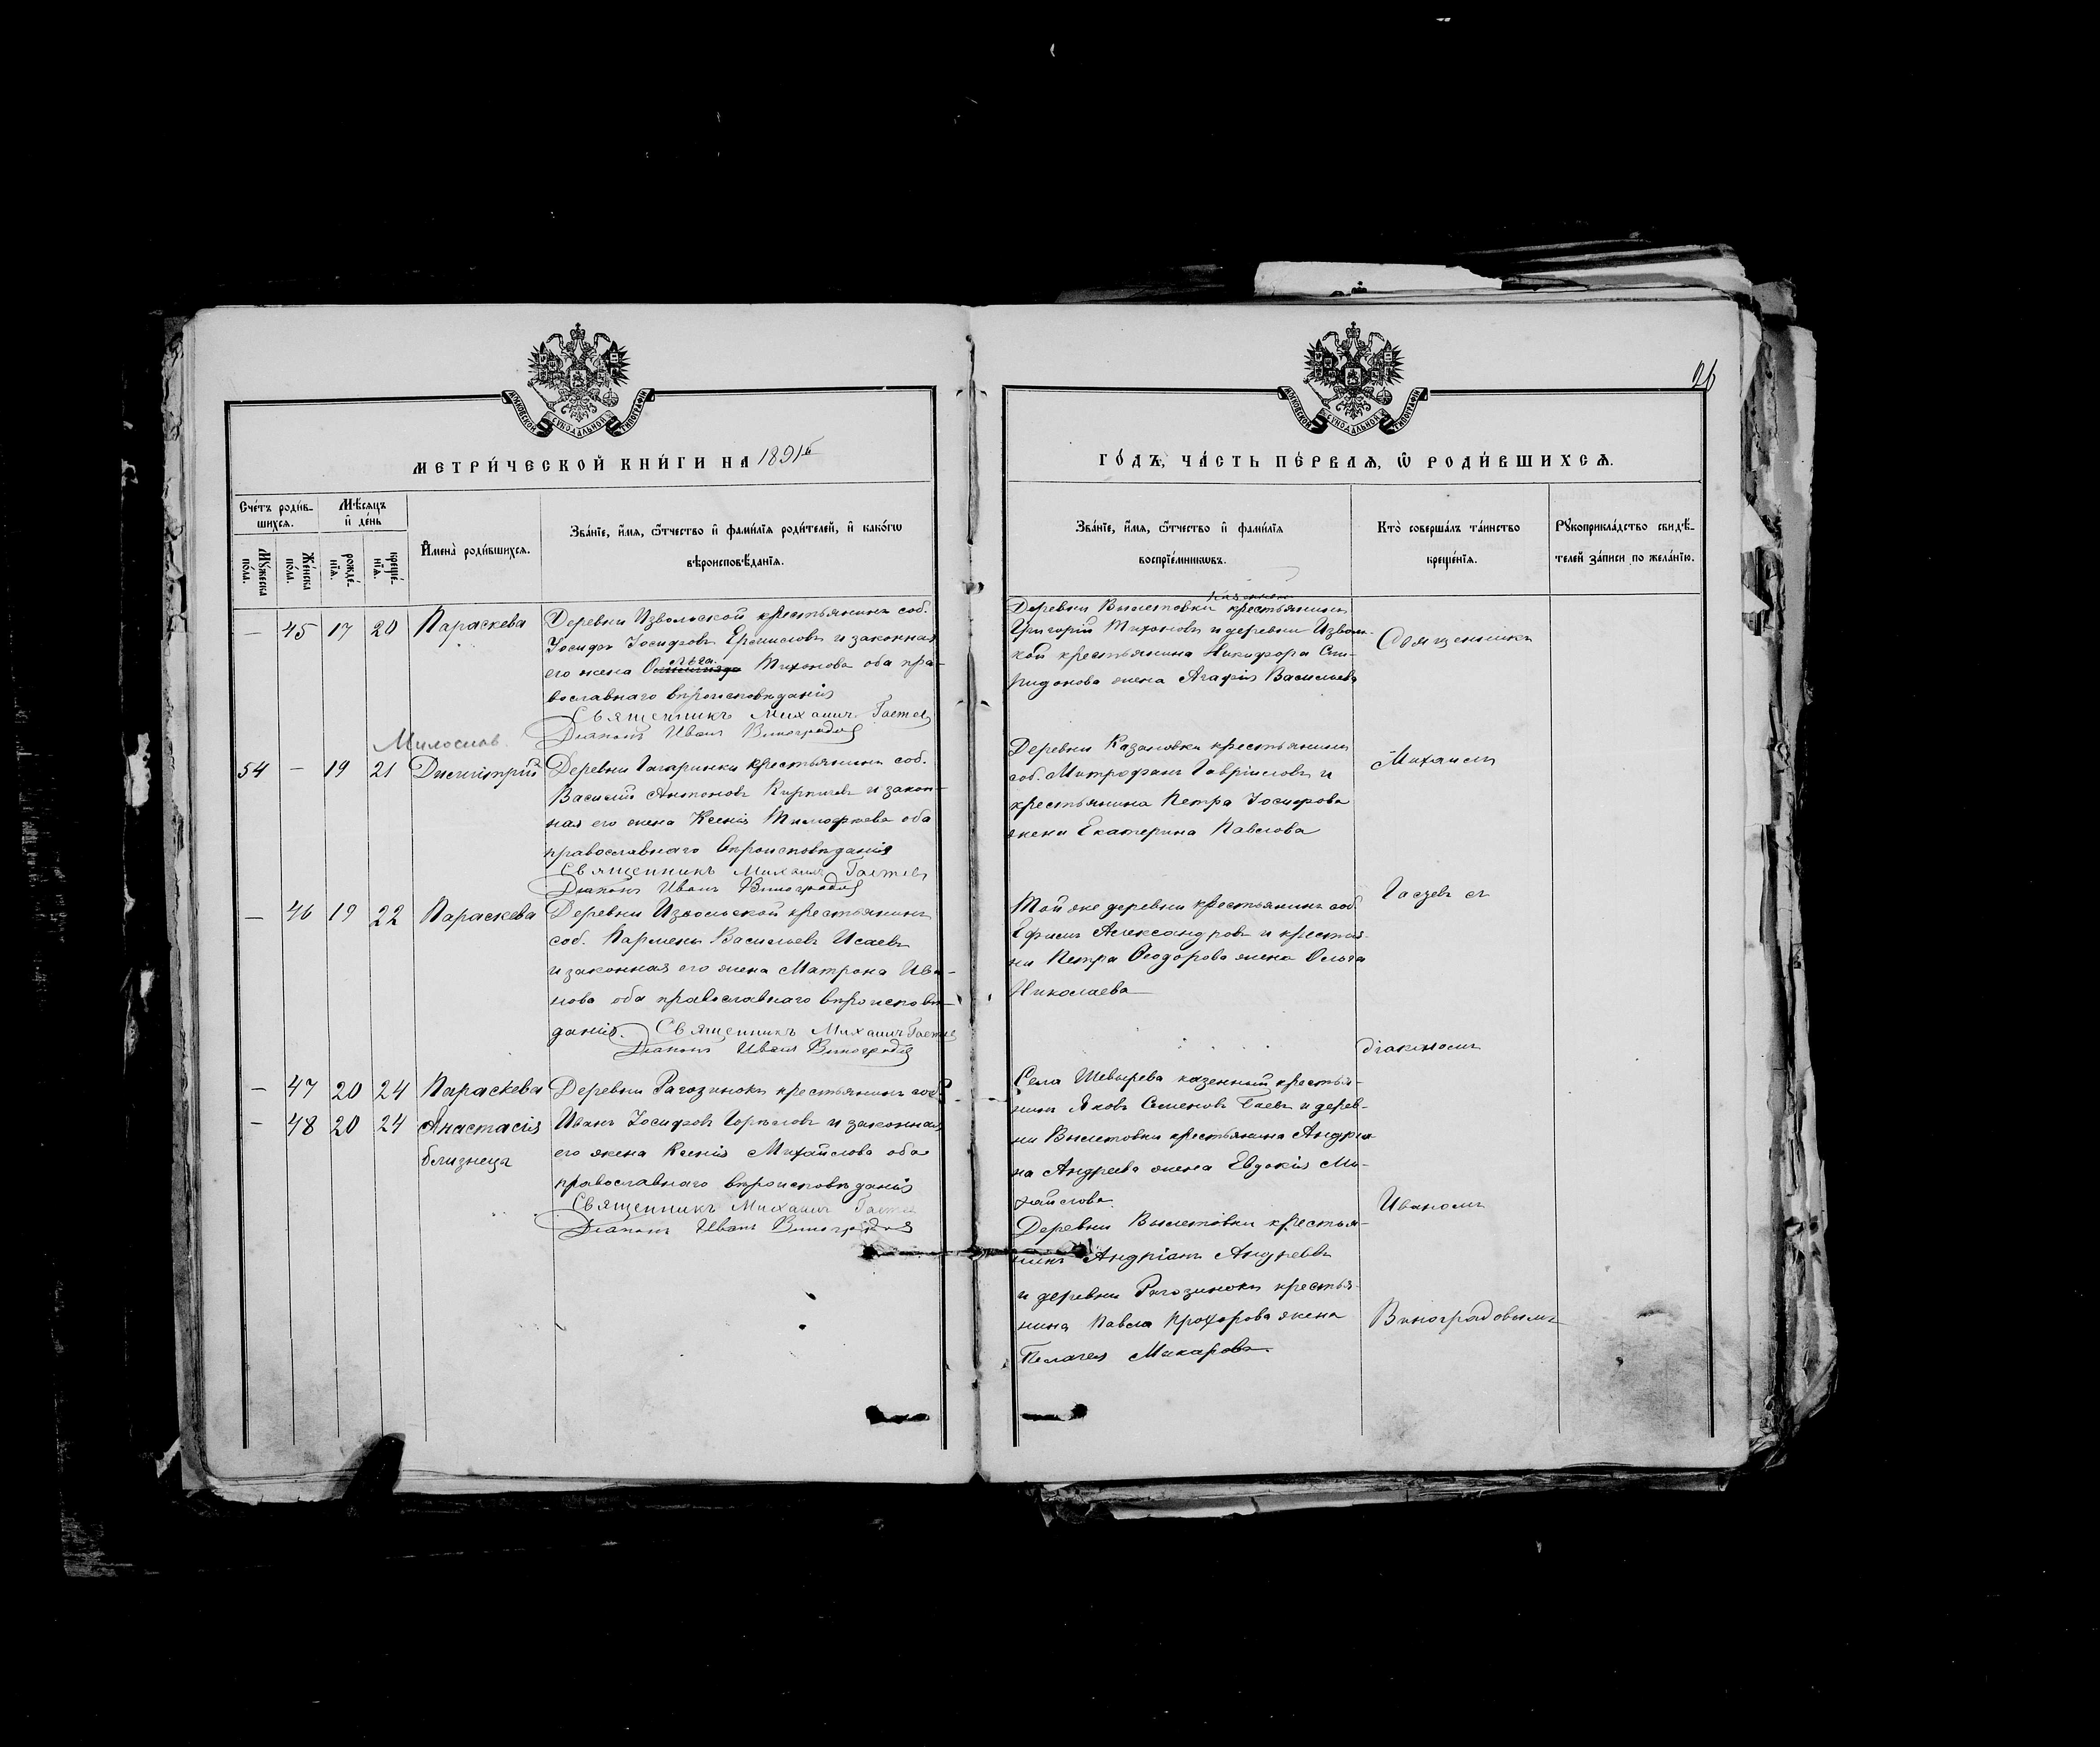 26
МОСКОВСКОЙ СѴНОДАЛЬНОЙ ТИПОГРАФІИ
МОСКОВСКОЙ СѴНОДАЛЬНОЙ ТИПОГРАФІИ
МЕТРИ́ЧЕСКОЙ КНИ́ГИ НА 1891й
ГО́ДЪ, ЧА́СТЬ ПЕ́РВАѦ, Ѡ҆ РОДИ́ВШИХСѦ.
Сче́тъ роди́в-
шихсѧ.
Мѣ́сѧцъ
и҆ де́нь
Мꙋ́жеска по́ла.
Же́нска по́ла.
рожде́-
нїѧ.
креще́-
нїѧ.
И҆мена̀ роди́вшихсѧ.
Зва́нїе, и҆́мѧ, ѻ҆́тчество и҆ фами́лїѧ роди́телей, и҆ како́гѡ
вѣроисповѣ́данїѧ.
Зва́нїе, и҆́мѧ, ѻ҆́тчество и҆ фами́лїѧ
воспрїе́мникѡвъ.
Кто̀ соверша́лъ та́инство
креще́нїѧ.
Рꙋкоприкла́дство свидѣ́-
телей за́писи по жела́нїю.
— 45 17 20 Параскева
Деревни Извольской крестьянинъ соб.
Іосифъ Іосифовъ Ермиловъ и законная
его жена Ольга Тихонова оба пра-
вославнаго вѣроисповѣданія
Священникъ Михаилъ Гастевъ
Діаконъ Иванъ Виноградовъ
Деревни крестьянинъ
Григорій Тихоновъ и деревни Изволь-
кой крестьянина Никифора Спи-
ридонова жена Агафія Васильева
Священникъ
Милослав.
54 — 19 21 Димитрій
Деревни Гагаринки крестьянинъ соб.
Василій Антоновъ и закон-
ная его жена Ксенія Тимофѣева оба
православнаго вѣроисповѣданія
Священникъ Михаилъ Гастевъ
Діаконъ Иванъ Виноградовъ
Деревни Казаковки крестьянинъ
соб. Митрофанъ Гавріиловъ и
крестьянина Петра Іосифова
жена Екатерина Павлова
Михаилъ
— 46 19 22 Параскева
Деревни Извольской крестьянинъ
соб. Парменъ Васильевъ Исаевъ
и законная его жена Матрона Ива-
нова оба православнаго вѣроисповѣ-
данія. Священникъ Михаилъ Гастевъ
Діаконъ Иванъ Виноградовъ
Той же деревни крестьянинъ соб.
Ефимъ Александровъ и крестья-
на Петра Ѳеодорова жена Ольга
Николаева
Гастевъ съ
діакономъ
— 47 20 24 Параскева
— 48 20 24 Анастасія
близнеца
Деревни Рагозинокъ крестьянинъ соб.
Иванъ Іосифовъ Горѣловъ и законная
его жена Ксенія Михайлова оба
православнаго вѣроисповѣданія
Священникъ Михаилъ Гастевъ
Діаконъ Иванъ Виноградовъ
Села Шевырева казенный крестья-
нинъ Яковъ Семеновъ Гаевъ и дерев-
ни крестьянина Андріа-
на Андреева жена Евдокія Ми-
хайлова
Деревни крестья-
нинъ Андріанъ Андреевъ
и деревни Рагозинокъ крестья-
нина Павла Прохорова жена
Пелагея Макарова.
Иваномъ
Виноградовымъ